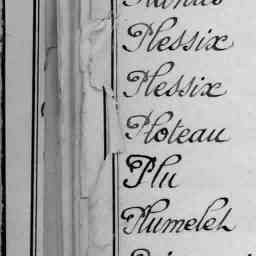 Plessix
Plessix
Ploteau
Plu
Plumelet